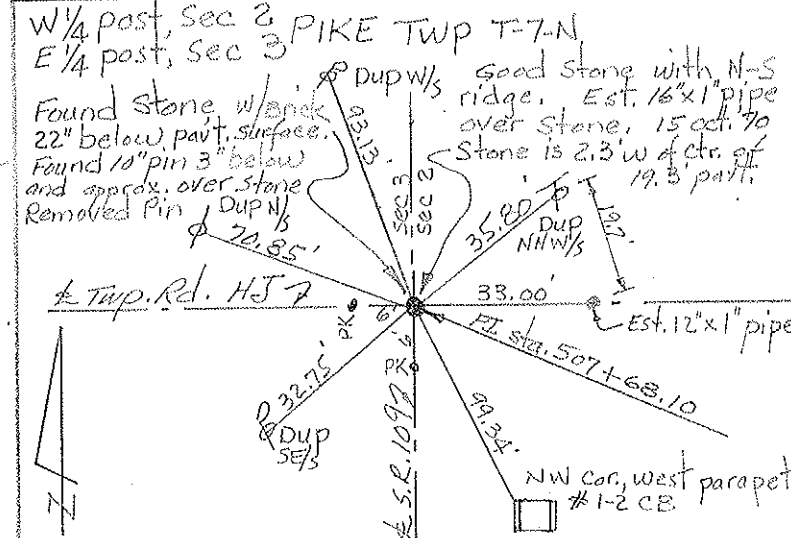 W 1/4 post, Sec 2 PIKE TWP T-7-N
E 1/4 post, Sec 3
Found Stone w/Brick
22" below pav't. surface.
Found 10" pin 3" below
and approx. over stone
Removed Pin
Dup W/S
93.13'
Good Stone with N-S
ridge. Est. 16"x1" pipe
over Stone. 15 Oct. 70
Stone is 2.3' W of ctr. of
19.3' pav't.
Dup N/S
70.85'
Sec 3
Sec 2
35.80'
Dup
NNW/S
19.7'
℄ Twp. Rd. HJ 7
PK
6'
33.00'
Est. 12"x1" pipe
6'
PK
PI Sta. 507+68.10
32.75'
Dup
SE/S
99.34'
℄ S.R. 109
N
NW Cor., West parapet
# 1-2 CB